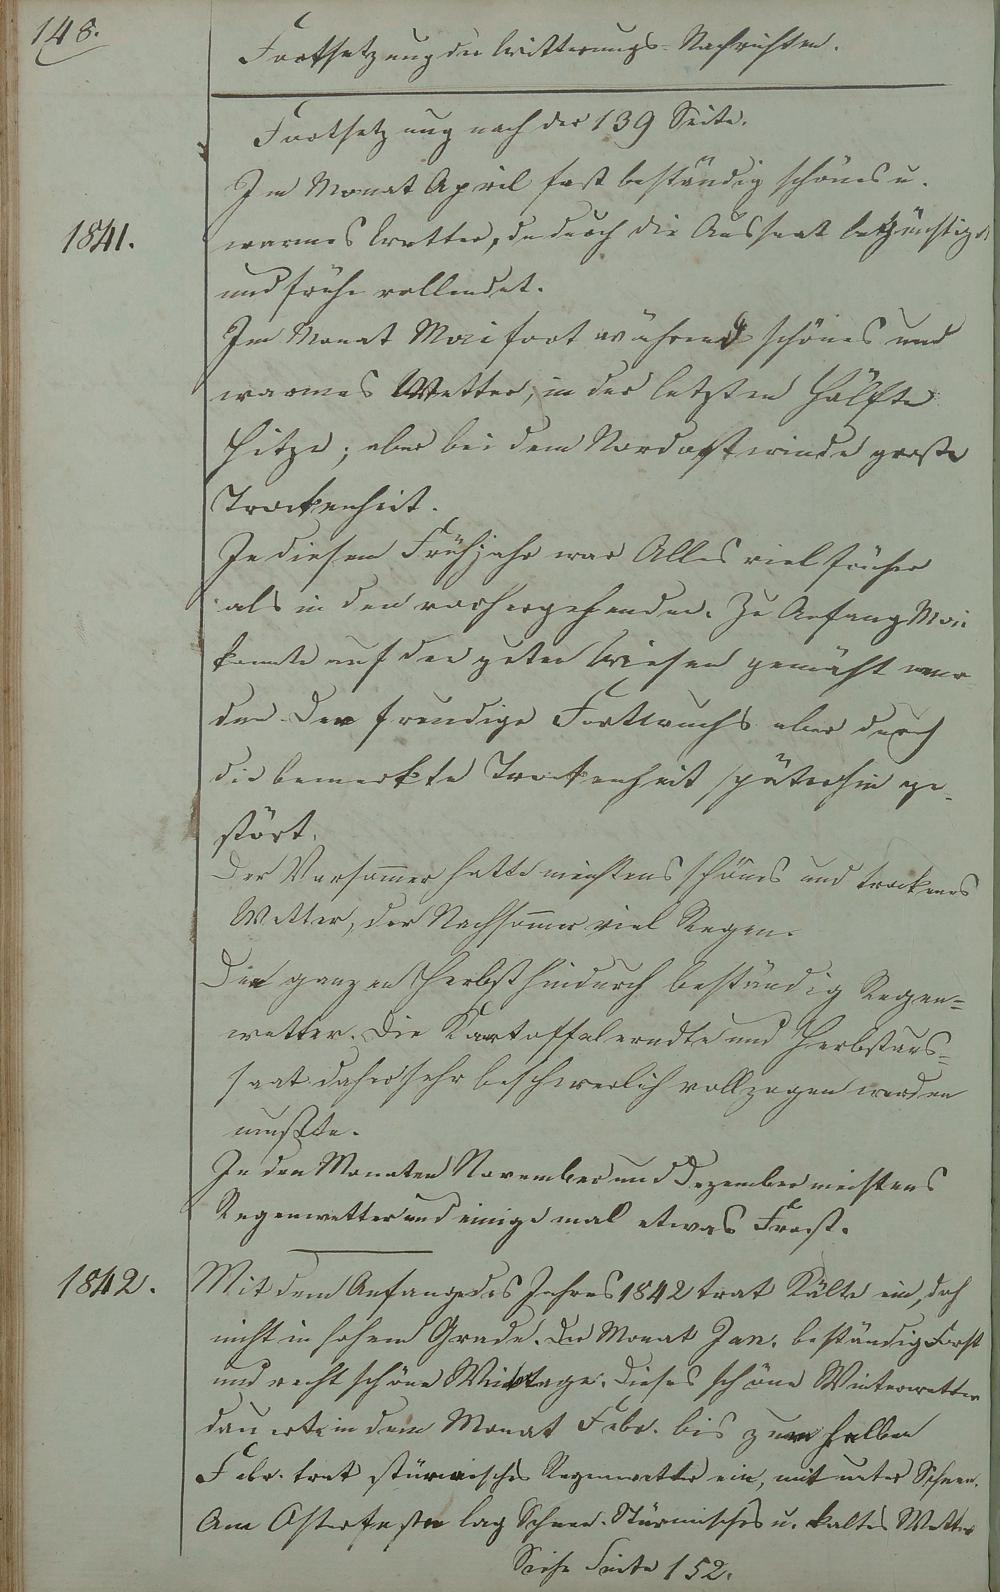 148.
Fortsetzung der Witterungs-Nachrichten.
Fortsetzung nach der 139 Seite.
Im Monat April fast beständig schönes u.
1841.
warmes Wetter, dadurch die Aussaat begünstigt
und frühe vollendet.
Im Monat Mai fortwährend schönes und
warmes Wetter, in der letzten Hälfte
Hitze; aber bei dem Nordostwinde große
Trockenheit.
In diesem Frühjahr war Alles viel früher
als in den vorhergehenden. Zu Anfang Mai
konnte auf den guten Wiesen gemäht wer-
den. Der freudige Fortwuchs aber durch
die bemerkte Trockenheit späterhin ge-
stört.
Der Vorsom̄er hatte meistens schönes und trockenes
Wetter, der Nachsom̄er viel Regen.
Den ganzen Herbst hindurch beständig Regen=
wetter. Die Kartoffelerndte und Herbstaus=
saat daher sehr beschwerlich vollzogen werden
mußte.
In den Monaten November und Dezember meistens
Regenwetter und einigemal etwas Frost.
1842.
Mit dem Anfange des Jahres 1842 trat Kälte ein, doch
nicht in hohem Grade. Der Monat Jan. beständig Frost
und recht schöne Wintertage. Dieses schöne Winterwetter
dauerte in dem Monat Febr. bis zum halben
Febr. trat stürmisches Regenwetter ein, mitunter Schnee.
Am Osterfeste lag Schnee. Stürmisches u. kaltes Wetter
Siehe Seite 152.